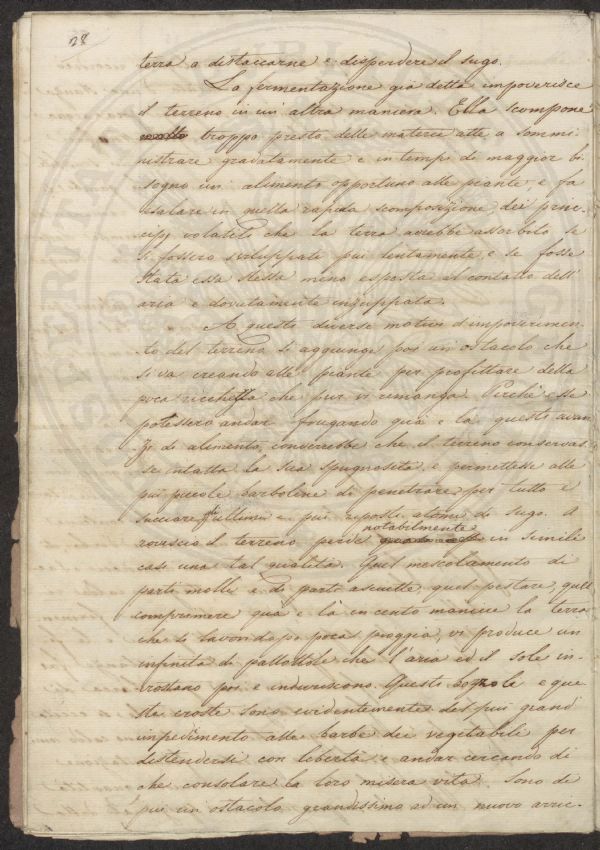 28
terra a distaccarne e disperdere il sugo.
La fermentazione già detta impoverisce
il terreno in un' altra maniera. Ella scompone
troppo presto delle materie atte a sommi-
nistrare gradatamente e in tempi di maggior bi-
sogno un alimento opportuno alle piante, e fa
esalare in quella rapida scomposizione dei prin-
cipj volatili che la terra avrebbe assorbito se
si fossero sviluppati più lentamente, e se fosse
stata essa stessa meno esposta al contatto dell'
aria e dovutamente inzuppata.
A questi diversi motivi d'impoverimen-
to del terreno si aggiunge poi un ostacolo che
si va creando alle piante per profittare della
poca ricchezza che pur vi rimanga. Perchè esse
potessero andar frugando quà e là questi avan-
zi di alimento, converrebbe che il terreno conservas-
se intatta la sua spugnosità, e permettesse alle
più piccole barboline di penetrare per tutto e
succiare gli ultimi e più riposti atomi di sugo. A
rovescio il terreno perde notabilmente in simile
caso una tal qualità. Quel mescolamento di
parti molli e di parti asciutte, quel pestare, quel
comprimere quà e là in cento maniere la terra
che si lavori dopo poca pioggia, vi produce un
infinità di pallottole che l'aria ed il sole in-
crostano poi e induriscono. Questi bozzole e que-
ste croste sono evidentemente del più grand'
impedimento alle barbe dei vegetabili per
distendersi con libertà e andar cercando di
che consolare la loro misera vita. Sono di
più un ostacolo grandissimo ad un nuovo arric-